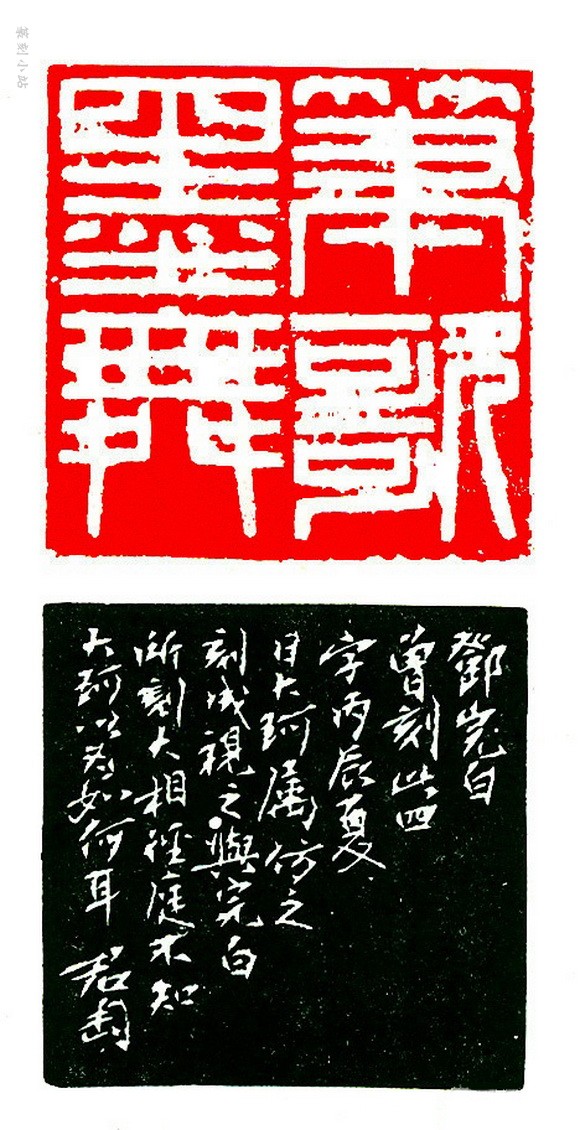 筆歌
墨舞
鄧完白
曾刻此四
字丙辰夏
日大珂属仿之
刻成視之與完白
所刻大相徑庭未知
大珂以为如何耳 君匋
篆刻小站